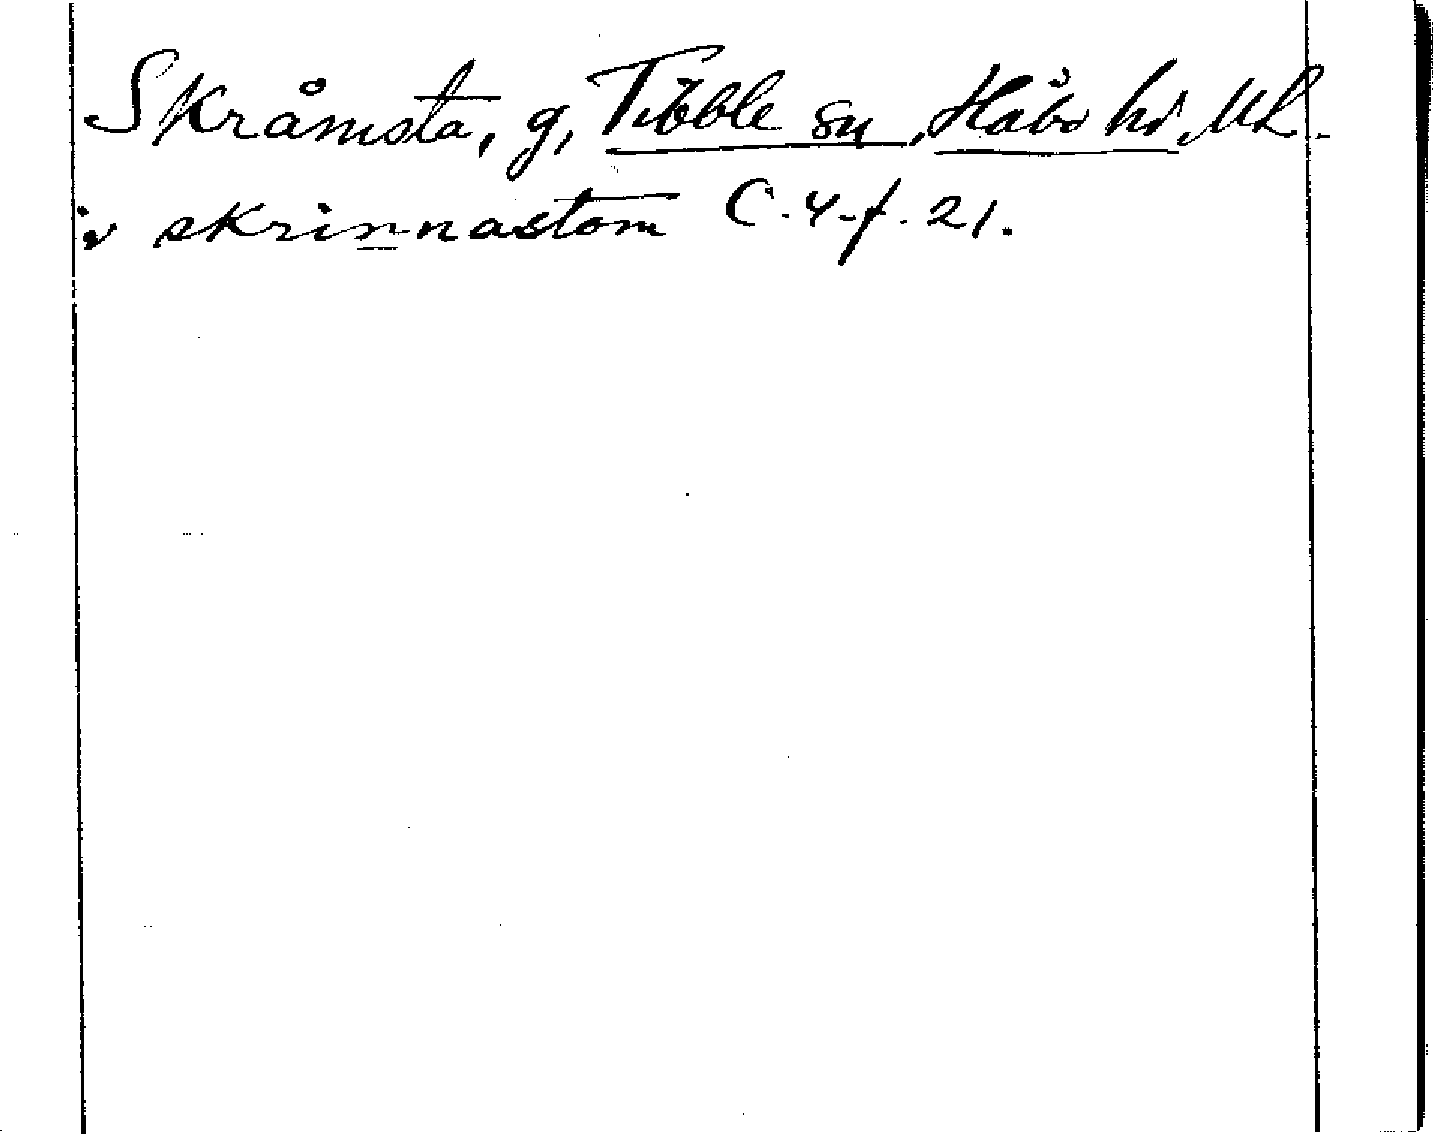 Skråmsta, g, Tibble sn, Håbo hd, Upl.
i skrinnastom C. 4. f. 21.